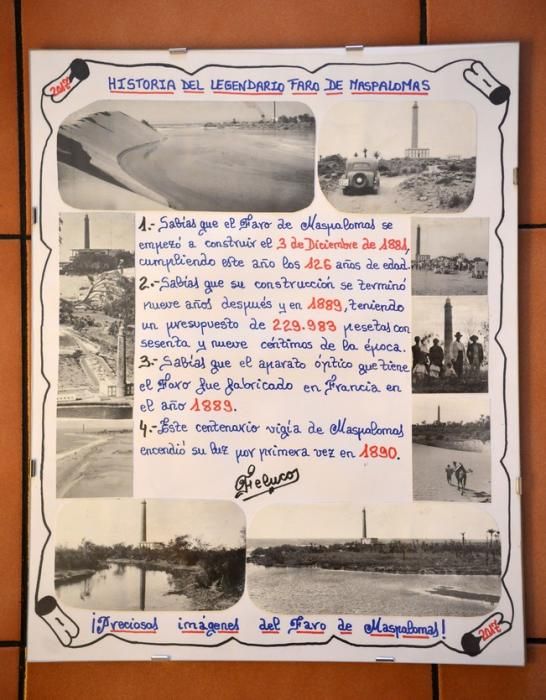 2017
HISTORIA DEL LEGENDARIO FARO DE MASPALOMAS
1.- Sabías que el Faro de Maspalomas se
empezó a construir el 3 de Diciembre de 1881,
cumpliendo este año los 126 años de edad.
2.- Sabías que su construcción se terminó
nueve años después y en 1889, teniendo
un presupuesto de 229.983 pesetas con
sesenta y nueve céntimos de la época.
3.- Sabías que el aparato óptico que tiene
el Faro fue fabricado en Francia en
el año 1889.
4.- Este centenario vigía de Maspalomas
encendió su luz por primera vez en 1890.
Felucos
¡Preciosas imágenes del Faro de Maspalomas!
2017